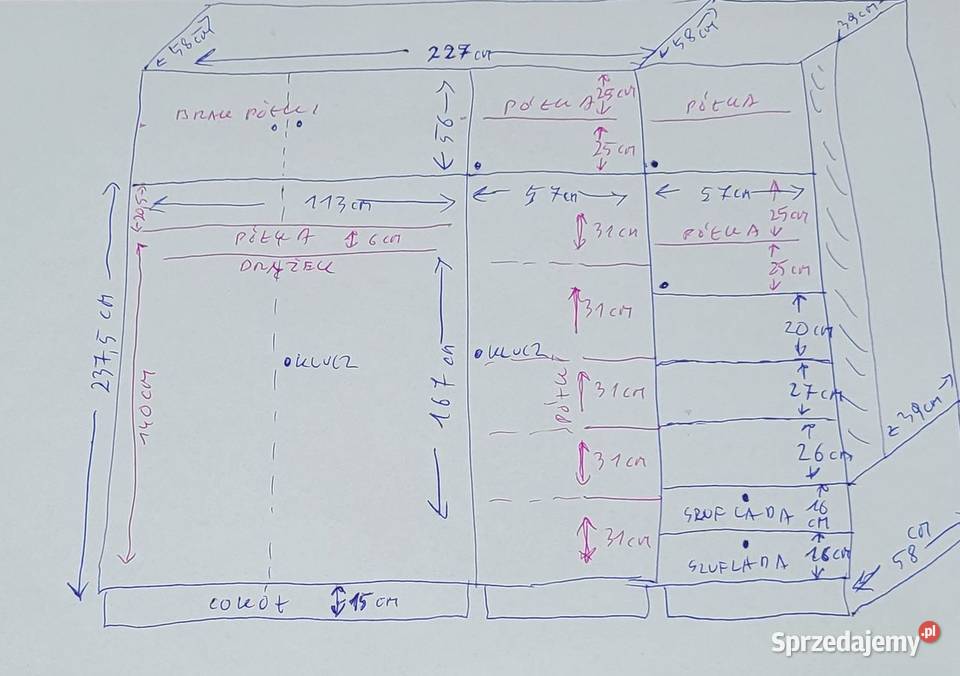 58cm
227cm
58cm
39cm
BRAK PÓŁKI
56
PÓŁKA
25cm
PÓŁKA
25cm
20,5
113cm
57cm
57cm
25cm
PÓŁKA
6cm
31cm
PÓŁKA
DRĄŻEK
25cm
237,5 cm
31cm
20cm
KLUCZ
167 cm
KLUCZ
140cm
PÓŁKI
31cm
27cm
39cm
31cm
26cm
SZUFLADA
16
CM
31cm
SZUFLADA
16cm
58 cm
COKÓŁ
15cm
Sprzedajemy.pl